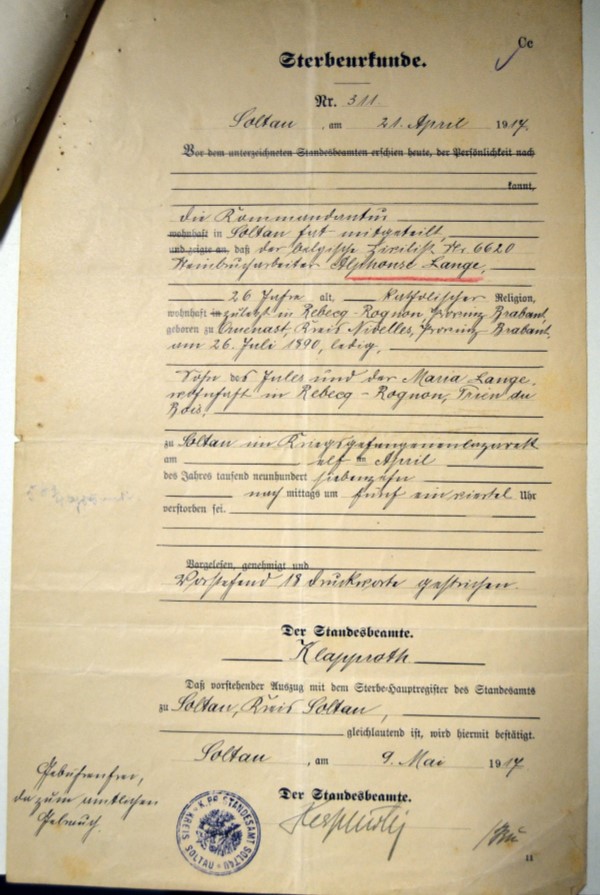 Cc
Sterbeurkunde.
Nr. 311.
Soltau, am 21. April 1917
Vor dem unterzeichneten Standesbeamten erschien heute, der Persönlichkeit nach
kannt,
die Kommandantur
wohnhaft in Soltau hat mitgeteilt,
und zeigte an, daß der belgische Zivilist Nr 6620
Steinbrucharbeiter Alphonse Lange,
26 Jahre alt, katholischer Religion,
wohnhaft in zuletzt in Rebecq-Rognon, Provinz Brabant,
geboren zu Quenast, Kreis Nivelles, Provinz Brabant,
am 26. Juli 1890, ledig,
Sohn des Jules und der Maria Lange,
wohnhaft in Rebecq-Rognon, Trien du
Bois,
zu Soltau im Kriegsgefangenenlazarett
am elften April
des Jahres tausend neunhundert siebenzehn
nach mittags um fünf einviertel Uhr
verstorben sei.
Vorgelesen, genehmigt und
Vorstehend 18 Druckworte gestrichen.
Der Standesbeamte.
Klapproth
Daß vorstehender Auszug mit dem Sterbe-Hauptregister des Standesamts
zu Soltau, Kreis Soltau,
gleichlautend ist, wird hiermit bestätigt.
Soltau, am 9. Mai 1917
Der Standesbeamte.
Gebührenfrei,
da zum amtlichen
Gebrauch.
K. PR. STANDESAMT SOLTAU
KREIS SOLTAU
11